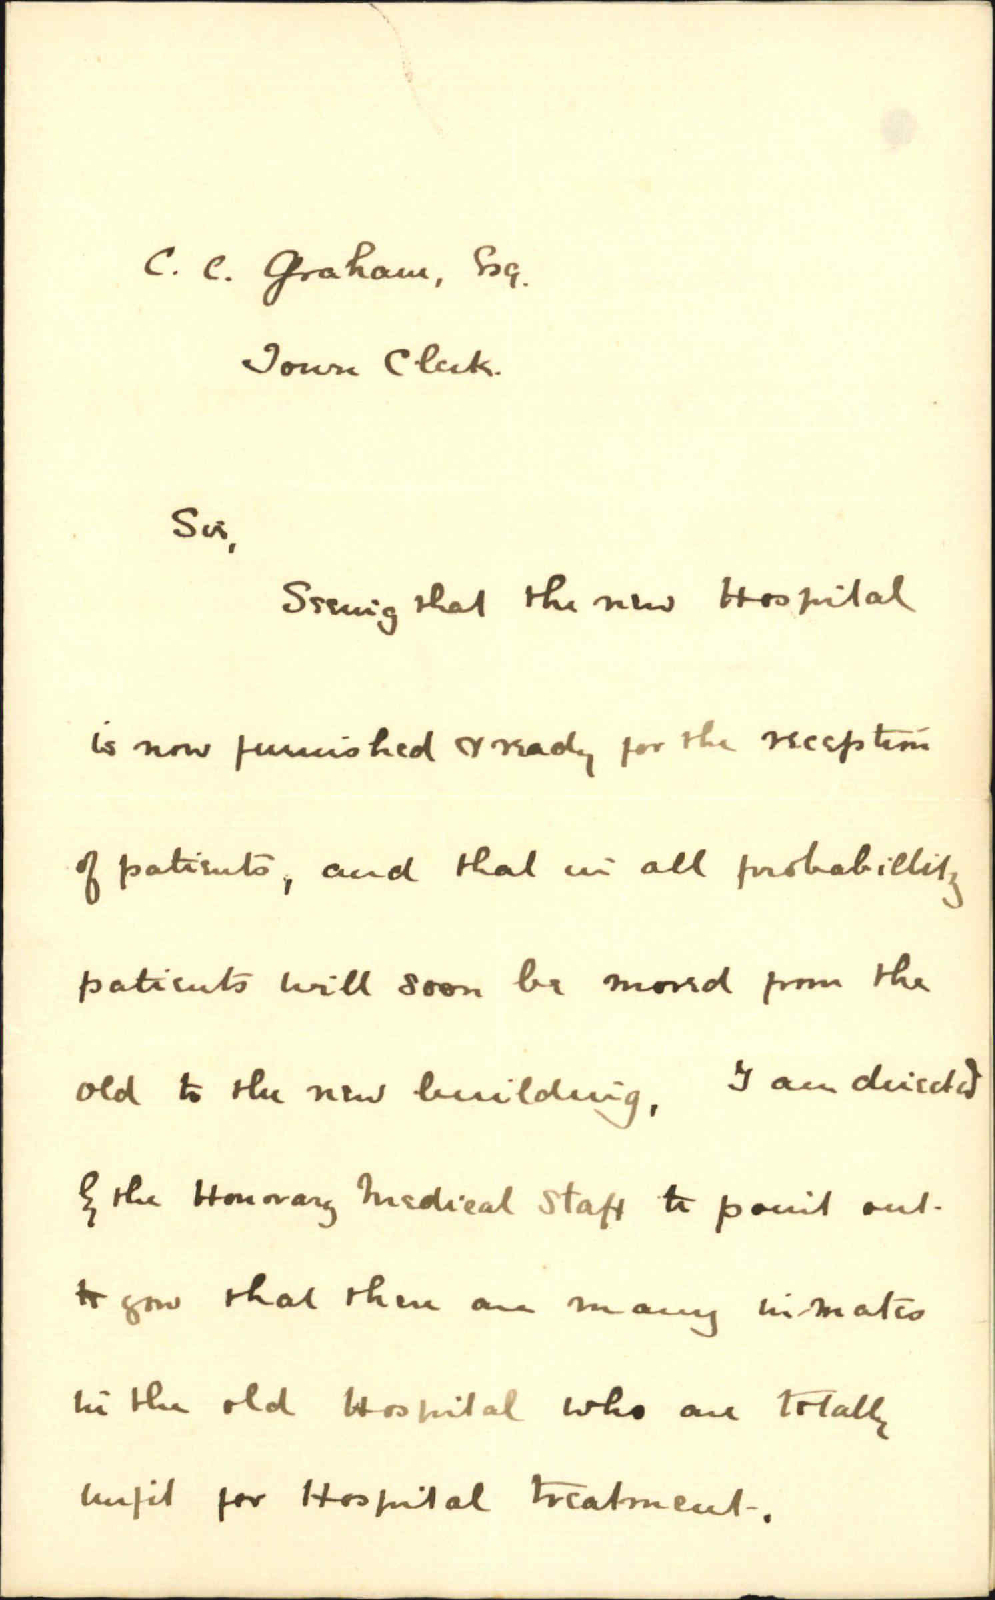 C. C. Graham, Esq.
Town Clerk.
Sir,
Seeing that the new Hospital
is now furnished & ready for the reception
of patients, and that in all probabillity
patients will soon be moved from the
old to the new building, I am directed
by the Honorary Medical Staff to point out
to you that there are many inmates
in the old Hospital who are totally
unfit for Hospital treatment.